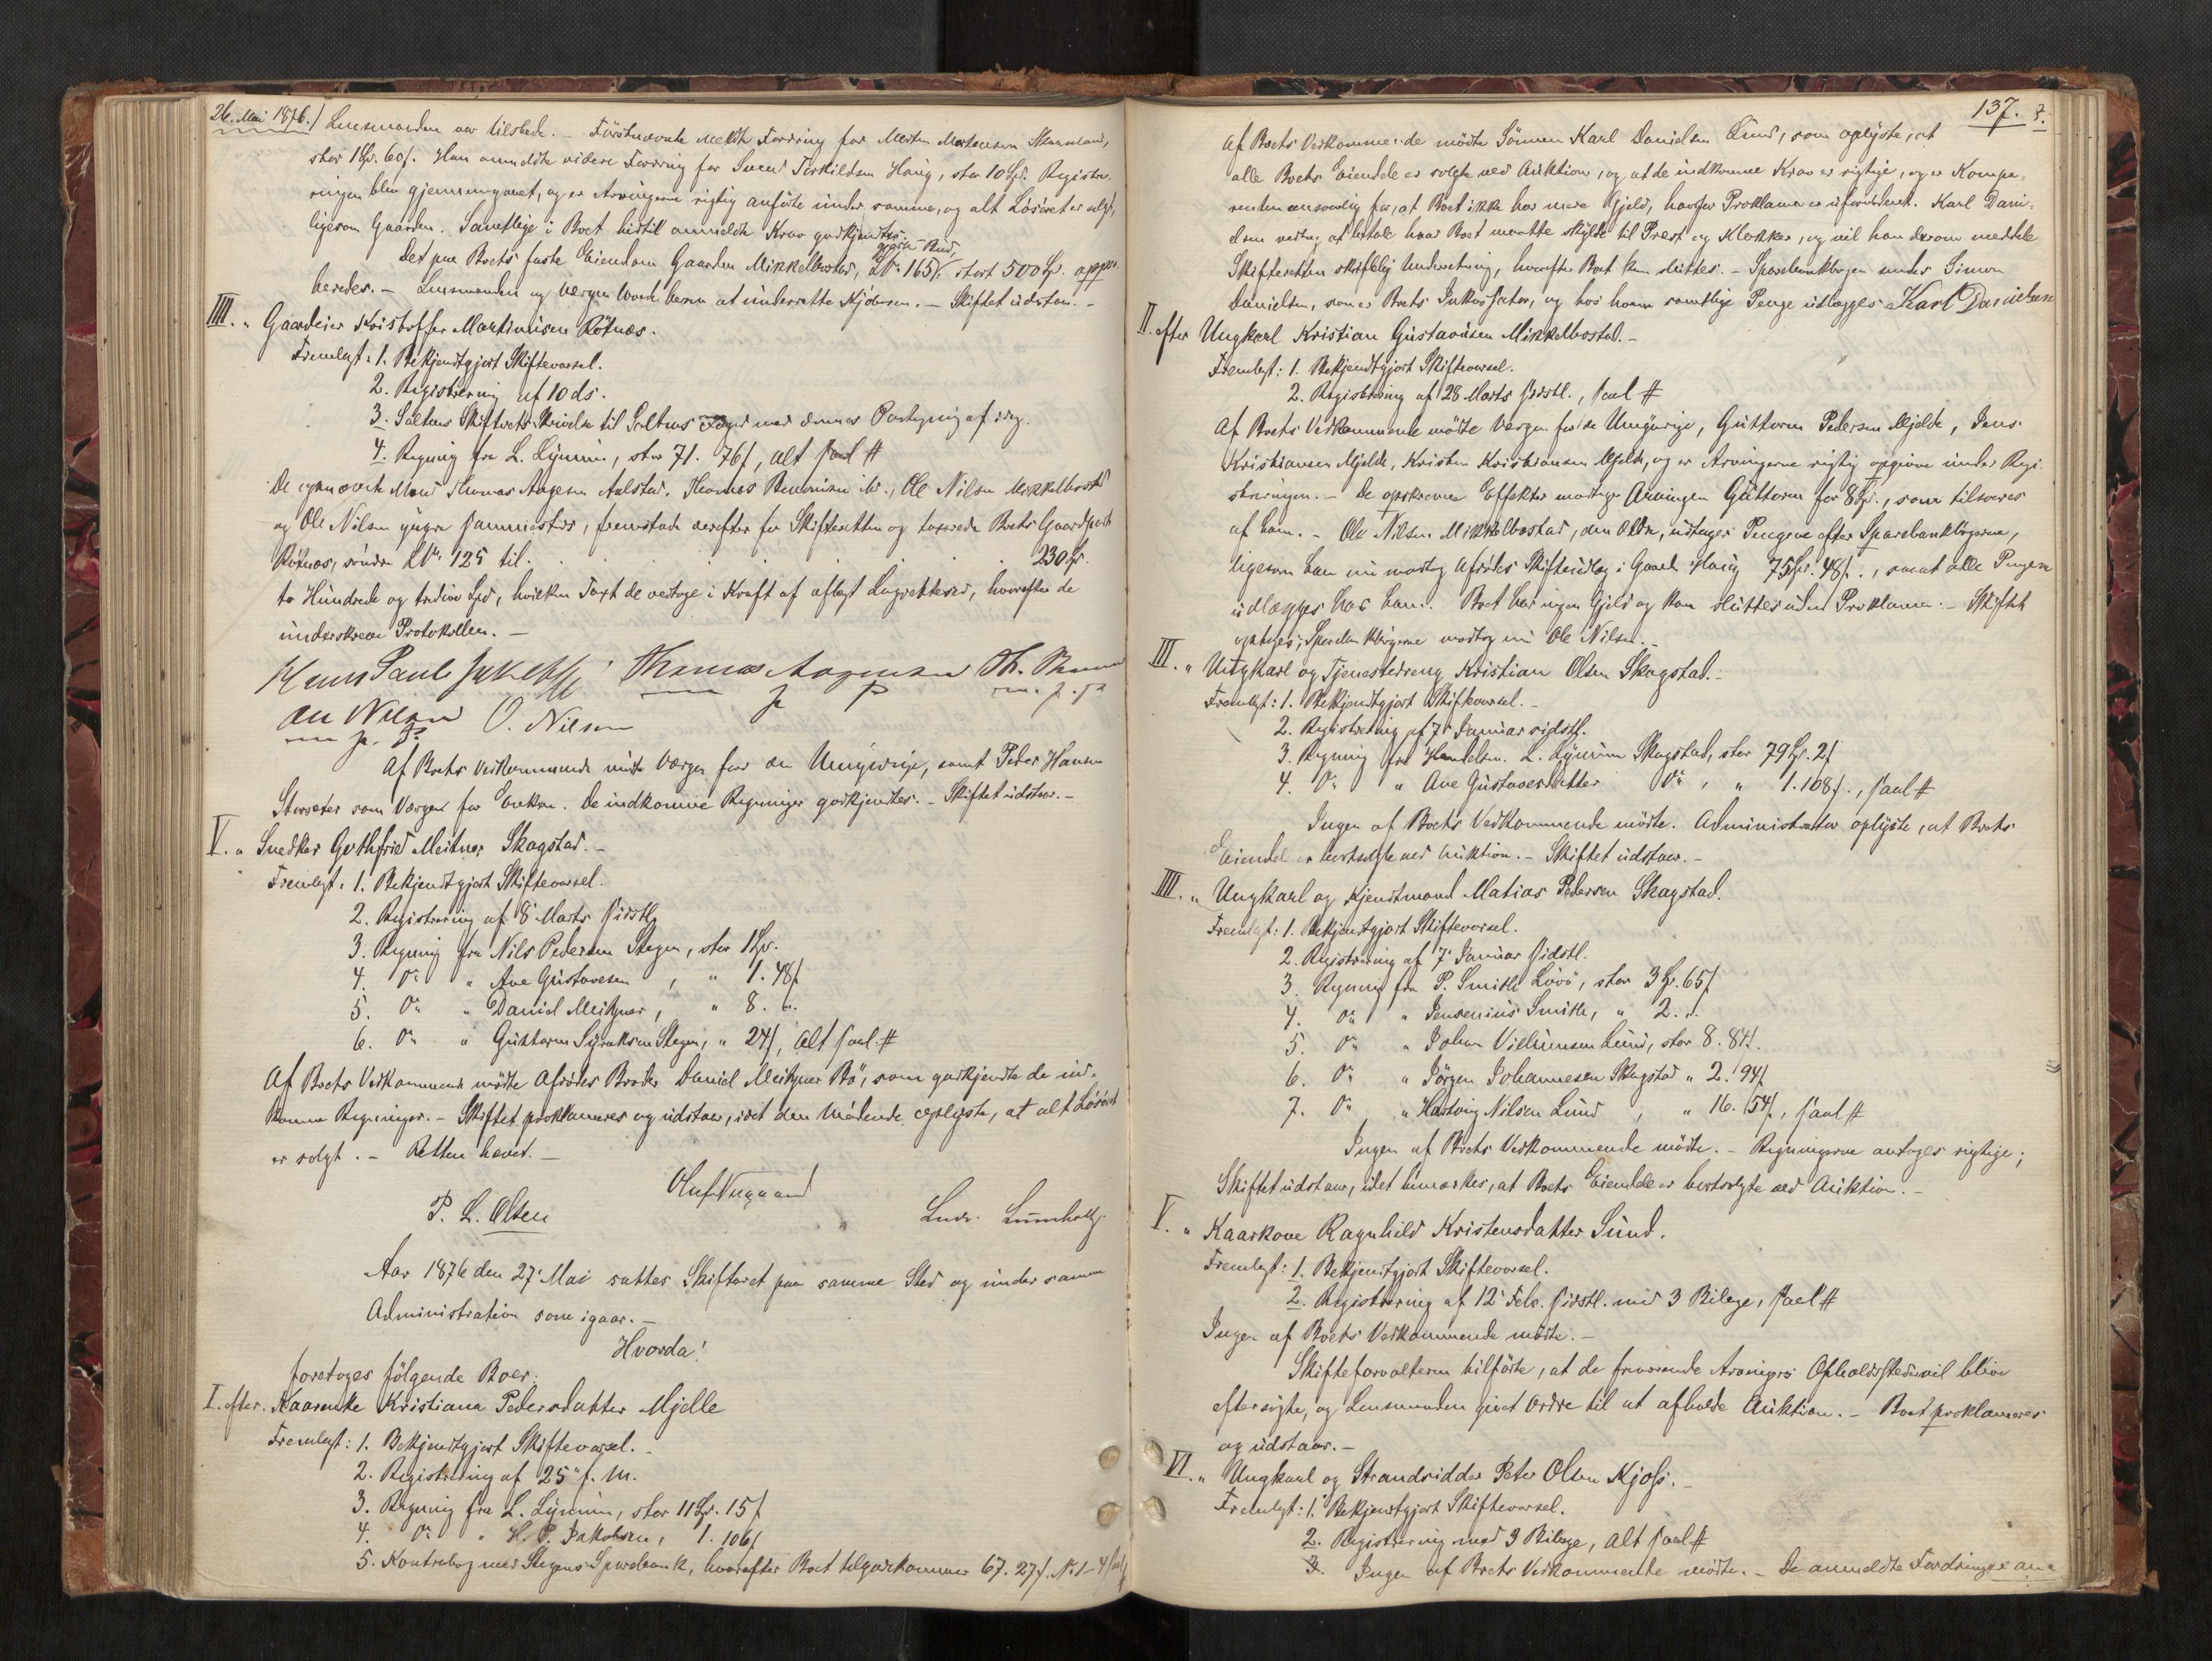 26. Mai 1876.) Lensmanden var tilstede. – Förstnævnte meldte Fordring for Morten Mortensen Skarmand,
stor 1 Spd. 60 s. Han anmeldte videre Fordring for Svend Torkildsen Haug, stor 10 Spd. Registre-
ringen blev gjennemgaaet, og er Arvingerne rigtig anförte under samme, og alt Lösöret er solgt,
ligesom Gaarden. Samtlige i Boet hidtil anmeldte Krav godkjendtes.
gjorte Bud,
Det paa Boets faste Eiendom Gaarden Mikkelbostad, LNo 165, stort 500 Spd. appro-
beredes. – Lensmanden og Vergen vorde beren at underrette Kjöberen. – Skiftet udstaar. –
IIII. " Gaardeier Kristoffer Martinusen Rötnæs.
Fremlagt: 1. Bekjendtgjort Skiftevarsel.
2. Registrering af 10 ds.
3. Saltens Skifterets Skrivelse til Saltens Foged med dennes Paategning af idag.
4. Regning fra L. Lynum, stor 71. 76 s, alt saal. #
De opnævnte Mænd Thomas Aagesen Aalstad, Thomas Benonisen ibd., Ole Nilsen Mikkelbostad
og Ole Nilsen yngre sammesteds, fremstod derefter for Skifteretten og taxerede Boets Gaardpart
Rötnæs, söndre LNo 125 til . . . . 230 Spd.
to Hundrede og tredive Spd, hvilken Taxt de vedtoge i Kraft af aflagt Lagretteed, hvorefter de
underskreve Protokollen. –
Thomas Aagesen
m. f. P.
Ole Nilsen O. Nilsen
m. p. P.
Af Boets Vedkommende mötte Værgen for de Umyndige, samt Peder Hansen
Storsæter som Værgen for Enken. De indkomne Regninger godkjendtes. – Skiftet udstaar. –
V. " Snedker Gothfried Meitner Skagstad. –
Fremlagt: 1. Bekjendtgjort Skiftevarsel.
2. Registrering af 8 Marts sidstl.
3. Regning fra Nils Pedersen Stegen, stor 1 Spd.
4. Do " Ane Gustavesen , " 1. 48 s
5. Do " Daniel Meitner, " 8. "
6. Do " Guttorm Syraksen Stegen, " 24 s, alt saal. #
Af Boets Vedkommende mödte Afdödes Broder Daniel Meitner Bö, som godkjendte de ind-
komne Regninger. – Skiftet proklameres og udstaar, idet den Mödende oplyste, at alt Lösöret
er solgt. – Retten hævet. –
Oluf Nygaard
P. L. Olsen Ludv. Lumholtz
Aar 1876 den 27 Mai sattes Skifteret paa samme Sted og under samme
Administration som igaar. –
Hvorda!
foretoges fölgende Boer:
I. efter. Kaarenke Kristiana Pedersdatter Mjelle
Fremlagt: 1. Bekjendtgjort Skiftevarsel. –
2. Registrering af 25 f. M.
3. Regning fra L. Lynum, stor 11 Spd. 15 s
4. Do " H. P. Jakobsen, 1. 106 s
5. Kontrabog med Stegens Sparebank, hvorefter Boet tilgodekommer 67. 27 s. No 1–4 saal.
137.
Af Boets Vedkommende mödte Sönnen Karl Danielsen Lund, som oplyste, at
alle Boets Eiendele er solgte ved Auktion, og at de indkomne Krav er rigtige, og er Kompa-
renten ansvarlig for, at Boet ikke har mere Gjeld, hvorfor Proklama er ufornödent. Karl Dani-
elsen vedtog at betale hvad Boet maatte skylde til Prest og Klokker, og vil han derom meddele
Skifteretten skriftlig Underretning, hvorefter Boet kan sluttes. – Sparebankbogen sendes Simon
Danielsen, som er Boets Inkassator, og hos hvem samtlige Penge udlægges. Karl Danielsen
II. efter Ungkarl Kristian Gustavusen Mikkelbostad. –
Fremlagt: 1. Bekjendtgjort Skiftevarsel.
2. Registrering af 28 Marts sidstl., saal. #
Af Boets Vedkommende mödte Værgen for de Umyndige, Guttorm Pedersen Mjelde, Jens
Kristiansen Mjelde, Kristen Kristiansen Mjelde, og er Arvingerne rigtig opgivne under Regi-
streringen. – De opskrevne Effekter modtager Arvingen Guttorm for 8 Spd., som tilsvares
af ham. – Ole Nilsen Mikkelbostad, den Ældre, udtager Pengene efter Sparebankbögerne,
ligesom han nu modtog Afdödes Skifteudlæg i Gaard Haug 75 Spd. 48 s., samt alle Pengene
udlægges hos ham. Boet har ingen Gjeld og kan sluttes uden Proklama. – Skiftet
optages; Sparebankbögerne modtog nu Ole Nilsen. –
III. " Ungkarl og Tjenestedreng Kristian Olsen Skagstad. –
Fremlagt: 1. Bekjendtgjort Skiftevarsel. –
2. Registrering af 7 Januar sidstl.
3. Regning fra Handelsm. L. Lynum Skagstad, stor 79 Spd. 2 s
4. Do " Ane Gustavesdatter Do , " 1. 108 s., saal #
Ingen af Boets Vedkommende mödte. Administrator oplyste, at Boets
Eiendele er bortsolgte ved Auktion. – Skiftet udstaar. –
IIII. " Ungkarl og Kjendtmand Matias Pedersen Skagstad.
Fremlagt: 1. Bekjendtgjort Skiftevarsel.
2. Registrering af 7 Januar sidstl.
3. Regning fra P. Smith Lövö, stor 3 Spd. 65 s
4. Do " Jensenius Smith, " 2. "
5. Do " Johan Vilhumsen Lund, stor 8. 84 s.
6. Do " Jörgen Johannesen Skagstad " 2. 94 s
7. Do " Hartvig Nilsen Lund , " 16. 54 s, saal #
Ingen af Boets Vedkommende mödte. – Regningerne antoges rigtige;
Skiftet udstaar, idet bemærkes, at Boets Eiendele er bortsolgte ved Auktion. –
V. " Kaarkone Ragnhild Kristensdatter Sund.
Fremlagt: 1. Bekjendtgjort Skiftevarsel.
2. Registrering af 12 Febr. sidstl. med 3 Bilage, saal #
Ingen af Boets Vedkommende mödte. –
Skifteforvalteren tilförte, at de fraværende Arvingers Opholdssteder vil blive
eftersögte, og Lensmanden givet Ordre til at afholde Auktion. – Boet proklameres
og udstaar. –
VI. " Ungkarl og Strandsidder Peter Olsen Kjoss. –
Fremlagt: 1. Bekjendtgjort Skiftevarsel.
2. Registrering med 3 Bilage, alt saal #
Ingen af Boets Vedkommende mödte. – De anmeldte Fordringer an-